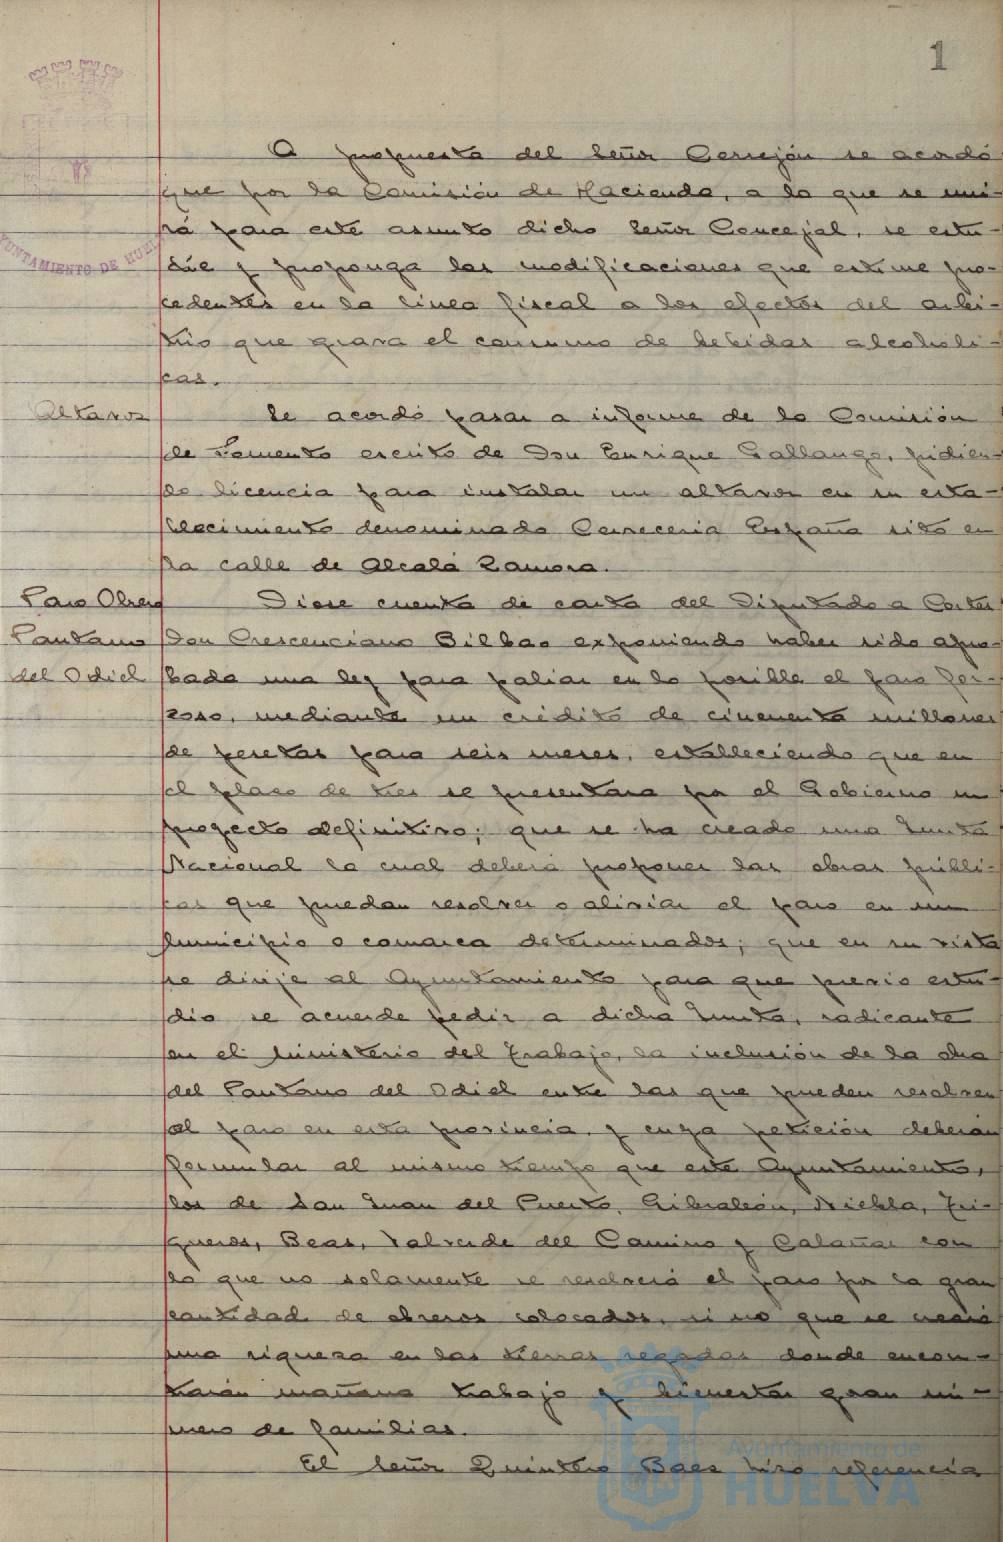 1
A propuesta del Señor Cerrejón se acordó
que por la Comisión de Hacienda, a la que se uni-
rá para este asunto dicho Señor Concejal, se estu-
die y proponga las modificaciones que estime pro-
cedentes en la linea fiscal a los efectos del arbi-
trio que grava el consumo de bebidas alcoholi-
cas.
AYUNTAMIENTO DE HUELVA
Altavoz
Se acordó pasar a informe de la Comisión
de Fomento escrito de Don Enrique Gallango, pidien-
do licencia para instalar un altavoz en su esta-
blecimiento denominado Cerveceria España sito en
la calle de Alcalá Zamora.
Paro Obrero
Pantano
del Odiel
Diose cuenta de carta del Diputado a Cortes
Don Crescenciano Bilbao exponiendo haber sido apro-
bada una ley para paliar en lo posible el paro for-
zoso, mediante un crédito de cincuenta millones
de pesetas para seis meses, estableciendo que en
el plazo de tres se presentara por el Gobierno un
proyecto definitivo; que se ha creado una Junta
Nacional la cual deberá proponer las obras públi-
cas que puedan resolver o aliviar el paro en un
Municipio o comarca determinados; que en su vista
se dirije al Ayuntamiento para que previo estu-
dio se acuerde pedir a dicha Junta, radicante
en el Ministerio del Trabajo, la inclusión de la obra
del Pantano del Odiel entre las que pueden resolver
el paro en esta provincia, y cuya petición deberán
formular al mismo tiempo que este Ayuntamiento,
los de San Juan del Puerto, Gibraleón, Niebla, Tri-
gueros, Beas, Valverde del Camino y Calañas con
lo que no solamente se resolverá el paro por la gran
cantidad de obreros colocados, si no que se creará
una riqueza en las tierras regadas donde encon-
trarán mañana trabajo y bienestar gran nú-
mero de familias.
El Señor Quintero Baez hizo referencia
Ayuntamiento de
HUELVA